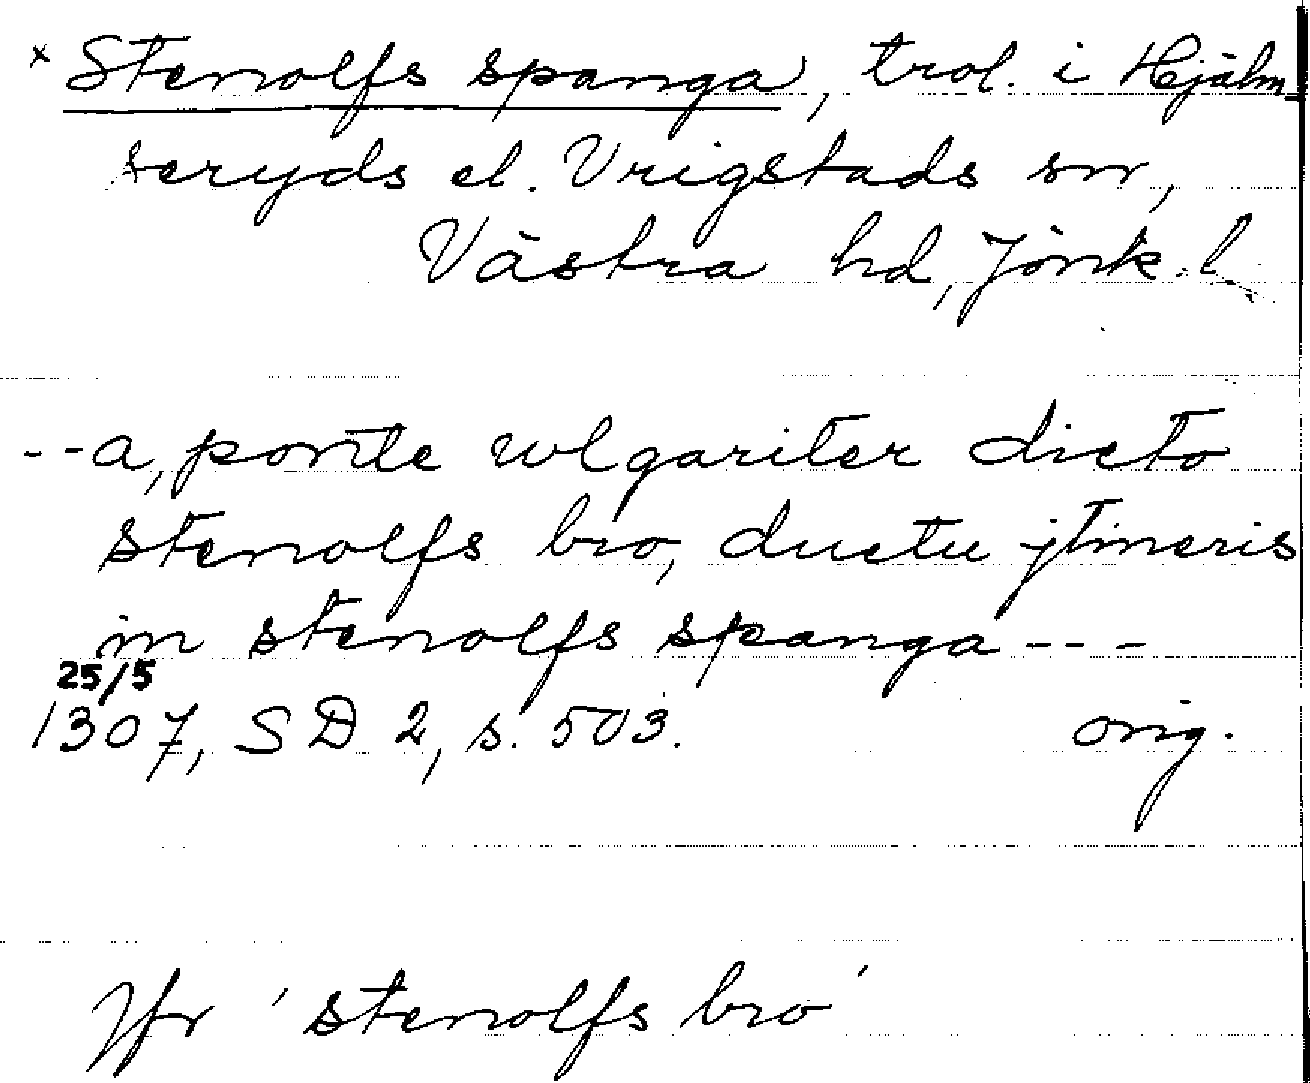 x Stenolfs spanga, trol. i Hjälm-
seryds el. Vrigstads snr,
Västra hd, Jönk. l
--a, ponte wlgariter dicto
stenolfs bro, ductu jtineris
in stenolfs spanga ---
25/5
1307, SD 2, s. 503. orig.
Jfr 'stenolfs bro'